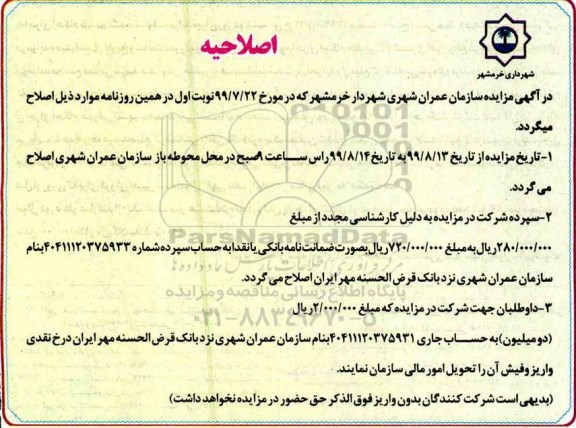 اصلاحیه
شهرداری خرمشهر
در آگهی مزایده سازمان عمران شهری شهردار خرمشهر که در مورخ ۹۹/۷/۲۲ نوبت اول در همین روزنامه موارد ذیل اصلاح
میگردد.
۱-تاریخ مزایده از تاریخ ۹۹/۸/۱۳ به تاریخ ۹۹/۸/۱۴ راس ساعت ۹صبح در محل محوطه باز سازمان عمران شهری اصلاح
می گردد.
۲-سپرده شرکت در مزایده به دلیل کارشناسی مجدد از مبلغ
۲۸۰/۰۰۰/۰۰۰ ریال به مبلغ ۷۲۰/۰۰۰/۰۰۰ ریال بصورت ضمانت نامه بانکی یا نقدا به حساب سپرده شماره ۴۰۴۱۱۱۲۰۳۷۵۹۳۳ بنام
سازمان عمران شهری نزد بانک قرض الحسنه مهر ایران اصلاح می گردد.
۳-داوطلبان جهت شرکت در مزایده که مبلغ ۲/۰۰۰/۰۰۰ ریال
(دو میلیون) به حساب جاری ۴۰۴۱۱۱۲۰۳۷۵۹۳۱ بنام سازمان عمران شهری نزد بانک قرض الحسنه مهر ایران درخ نقدی
واریز وفیش آن را تحویل امور مالی سازمان نمایند.
(بدیهی است شرکت کنندگان بدون واریز فوق الذکر حق حضور در مزایده نخواهد داشت)
ParsNamadData
پایگاه اطلاع رسانی مناقصه و مزایده
۰۲۱-۸۸۳۴۹۶۷۰-۵